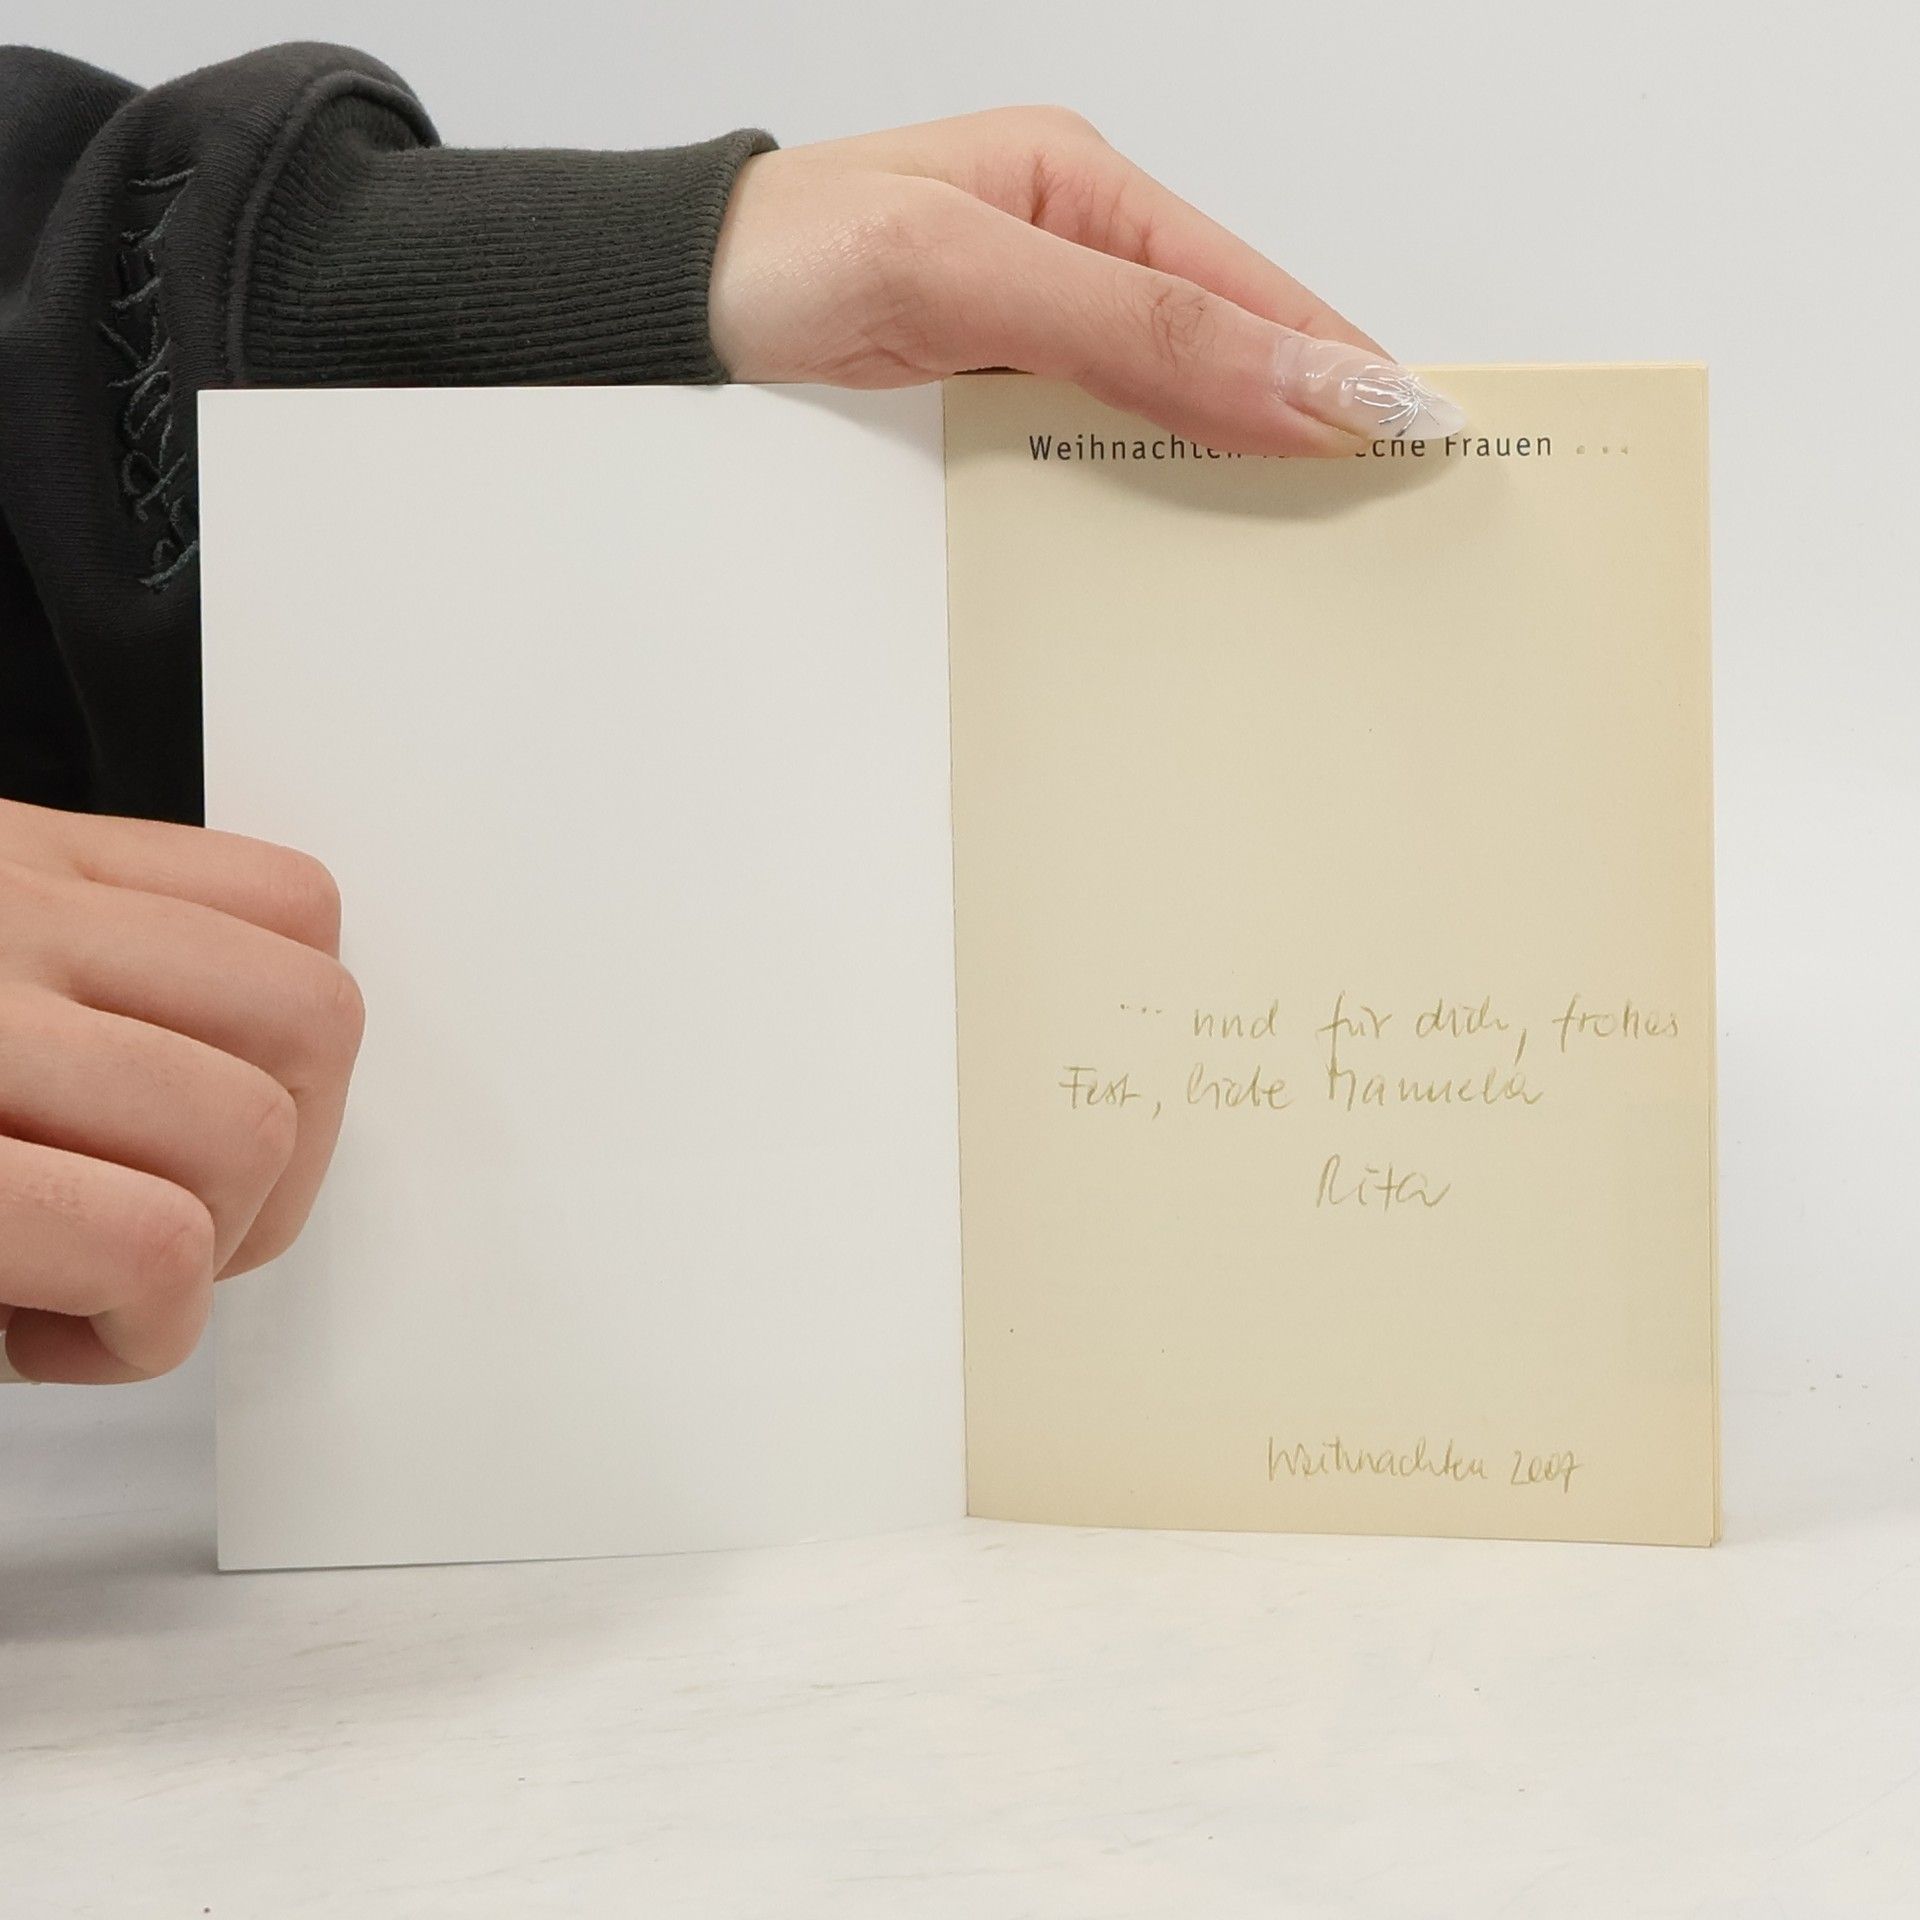 Weihnachten Frauen ...
... und für dich, frohes
Fest, liebe Manuela
Rita
Weihnachten 2007